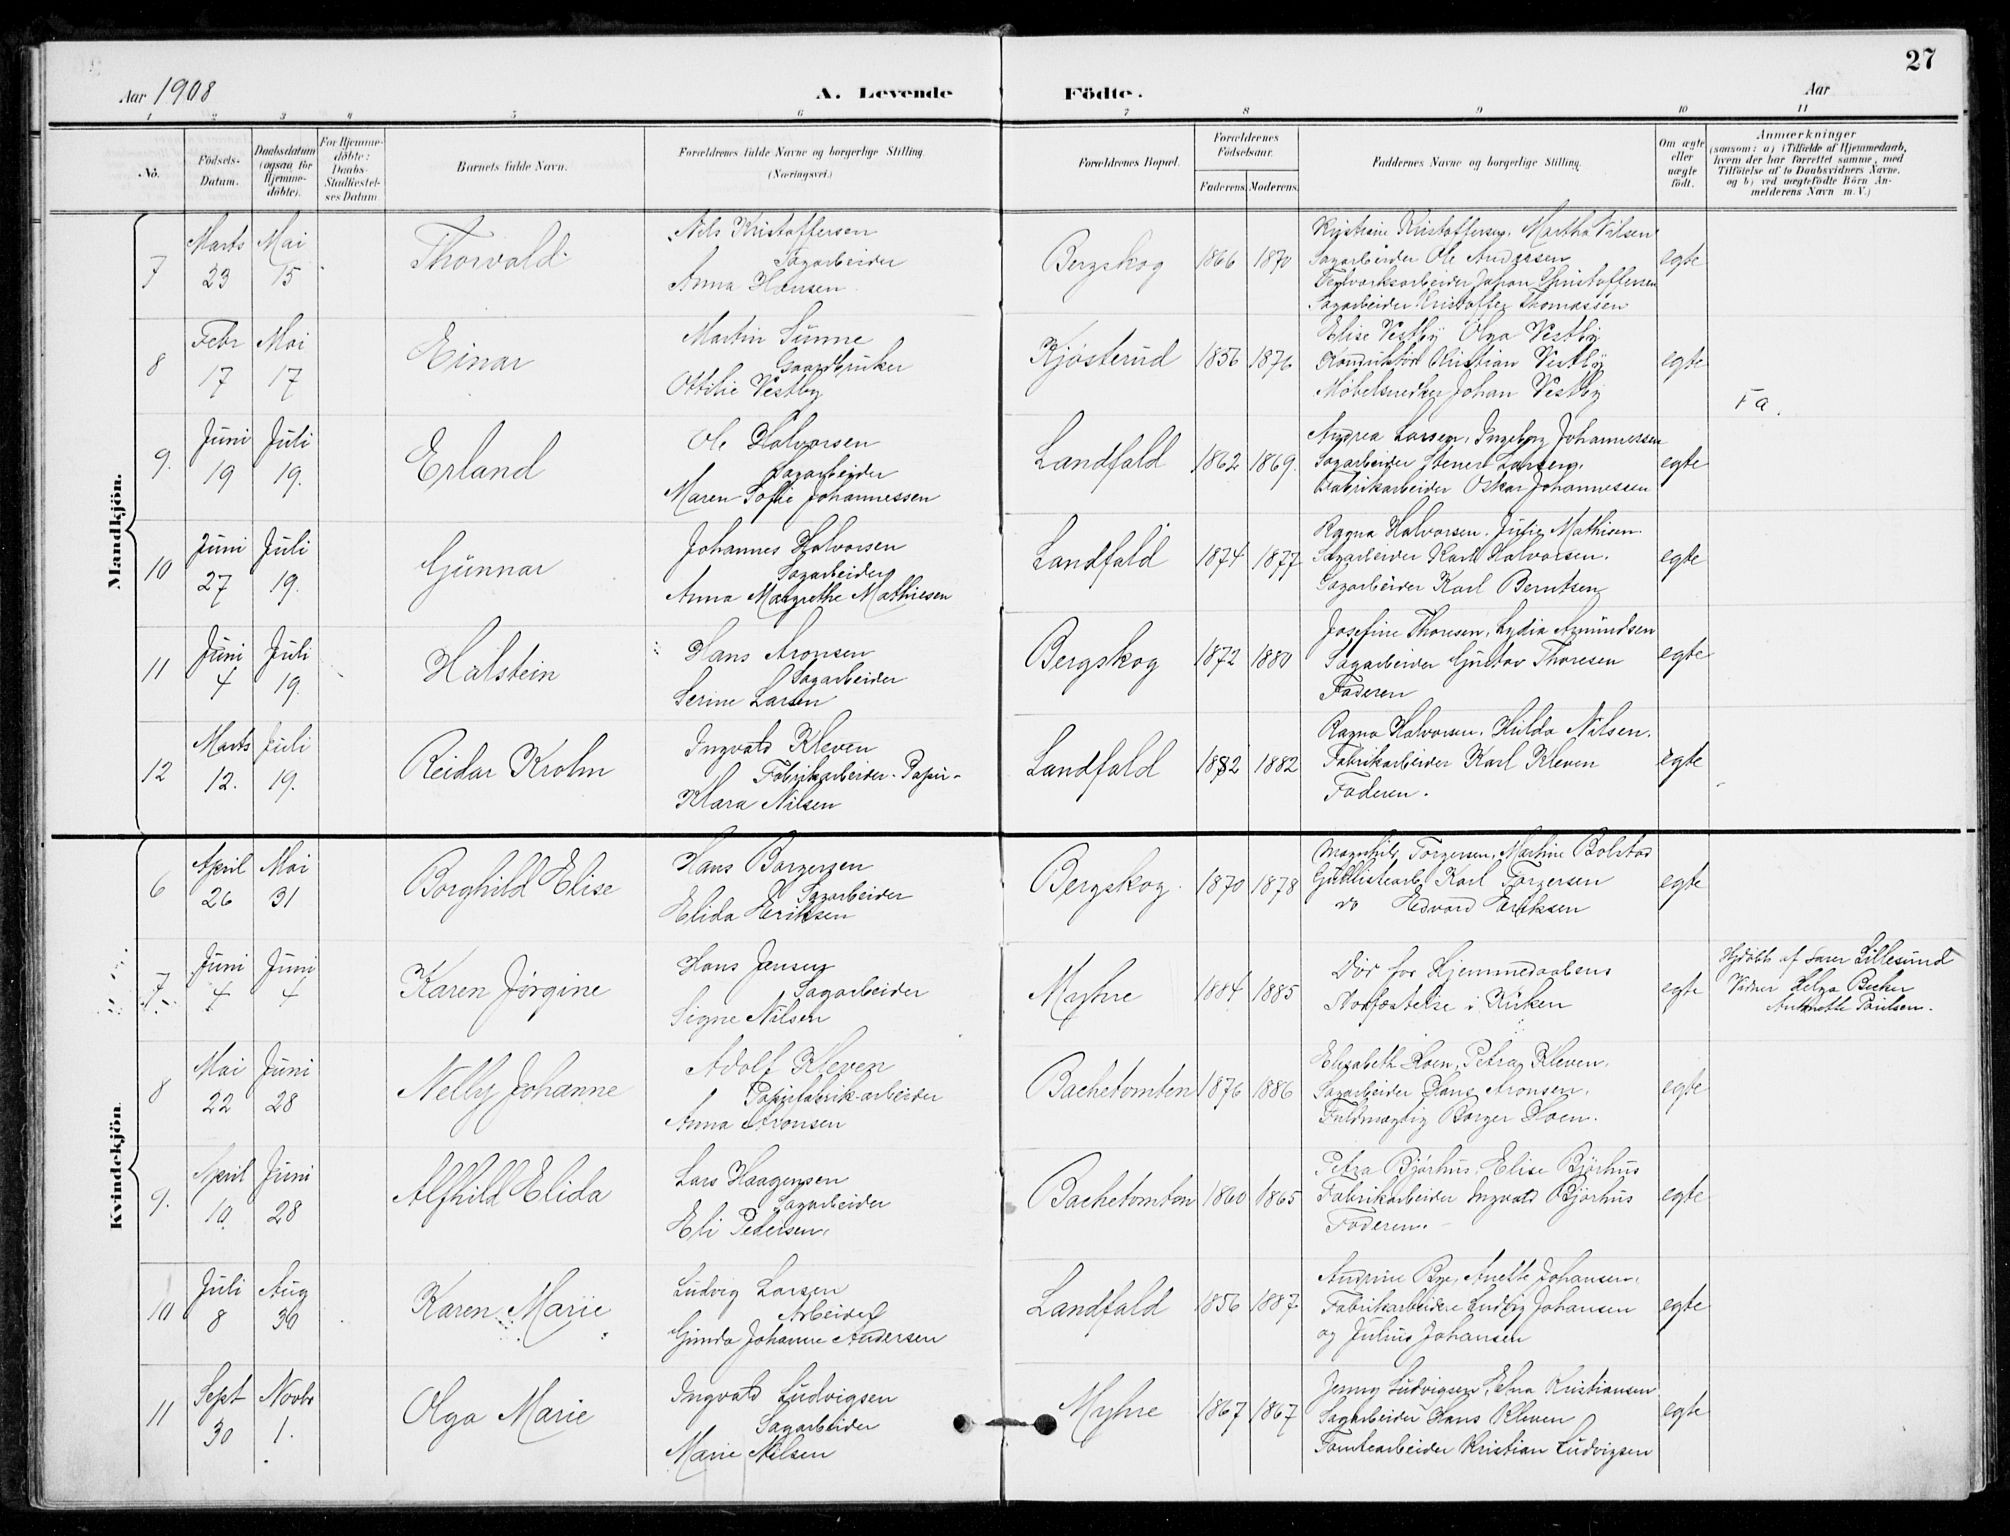 27
Aar 1908
A. Levende Födte.
Aar
1 2 3 4 5 6 7 8 9 10 11
No.
Födsels-Datum.
Daabsdatum (ogsaa for Hjemme-döbte).
For Hjemme-döbte: Daabs-Stadfæstel-ses Datum
Barnets fulde Navn.
Forældrenes fulde Navne og borgerlige Stilling (Næringsvei.)
Forældrenes Bopæl.
Forældrenes Födselsaar.
Faderens. Moderens.
Faddernes Navne og borgerlige Stilling.
Om ægte eller uægte födt.
Anmærkninger
(saasom: a) i Tilfælde af Hjemmedaab,
hvem der har forrettet samme, med
Tilföielse af to Daabsvidners Navne,
og b) ved uægtefödte Börn An-
melderens Navn m. V.)
Mandkjön.
7 Marts 23 Mai 15 Thorvald
Nils Kristoffersen
Sagarbeider
Anna Hansen
Bergskog 1866 1870
Kristiane Kristoffersen, Martha Nilsen
Sagarbeider Ole Andersen
Teglverksarbeider Johan Christoffersen
Sagarbeider Kristoffer Thomassen
egte
8 Febr 17 Mai 17 Einar
Martin Sunne
Gaardbruker
Ottilie Vestby
Kjøsterud 1856 1876
Elise Vestby Olga Vestby
Konduktør Christian Vestby
Møbelsnedker Johan Vestby
egte
9. Juni 19 Juli 19. Erland
Ole Halvorsen
Sagarbeider
Maren Sofie Johannessen
Landfald 1862 1869.
Andrea Larsen, Ingeborg Johannessen
Sagarbeider Stener Larsen,
Fabrikarbeider Oskar Johannessen
egte
10 Juni 27 Juli 19. Gunnar
Johannes Halvorsen
Sagarbeider
Anna Margrethe Mathiesen
Landfald 1874 1877
Ragna Halvorsen, Julie Mathisen
Sagarbeider Karl Halvorsen.
Sagarbeider Karl Berntsen
egte
11 Juni 4 Juli 19. Halstein
Hans Aronsen
Sagarbeider
Serine Larsen
Bergskog 1872 1880
Josefine Thoresen, Lydia Amundsen
Sagarbeider Gustav Thoresen
Faderen
egte
12 Marts 12. Juli 19. Reidar Krohn
Ingvald Kleven
Fabrikarbeider - Papir-
Klara Nilsen
Landfald 1882 1882
Ragna Halvorsen, Hilda Nilsen.
Fabrikarbeider Karl Kleven
Faderen.
egte
Kvindekjön.
6 April 26 Mai 31 Borghild Elise
Hans Borgersen
Sagarbeider
Elida Eriksen
Bergskog. 1870 1878
Magnhild Torgersen, Martine Bolstad
Gullistearb. Karl Torgersen
do Edvard Eriksen
egte
7 Juni 4 Juni 4 Karen Jørgine
Hans Jensen
Sagarbeider
Signe Nilsen
Myhre 1884 1885
Død før Hjemmedaabens
Stadfæstelse i Kirken
egte
Hjdøbt af Lærer Lillesund
Vidner Helga Becker
Antonette Paulsen.
8 Mai 22 Juni 28 Nelly Johanne
Adolf Kleven
Papirfabrik-arbeider
Anna Aronsen
Bachetomten 1876 1886
Elisabeth Loen, Petra Kleven,
Sagarbeider Hans Aronsen,
Fuldmægtig Borger Loen.
egte
9. April 10. Juni 28 Alfhild Elida
Lars Haagensen
Sagarbeider
Eli Pedersen,
Bachetomten 1860 1865
Petra Bjørhus, Elise Bjørhus
Fabrikarbeider Ingvald Bjørhus
Faderen.
egte
10 Juli 8 Aug 30 Karen Marie
Ludvig Larsen
Arbeider
Gunda Johanne Andersen
Landfald 1856 1887.
Andrine Bye, Anette Johansen,
Fabrikarbeidere Ludvig Johansen
og Julius Johansen
egte
11 Sept 30 Novbr 1. Olga Marie
Ingvald Ludvigsen
Sagarbeider
Marie Nilsen
Myhre 1867 1867
Jenny Ludvigsen, Edna Kristiansen
Sagarbeider Hans Kleven
Tomtearbeider Kristian Ludvigsen
egte